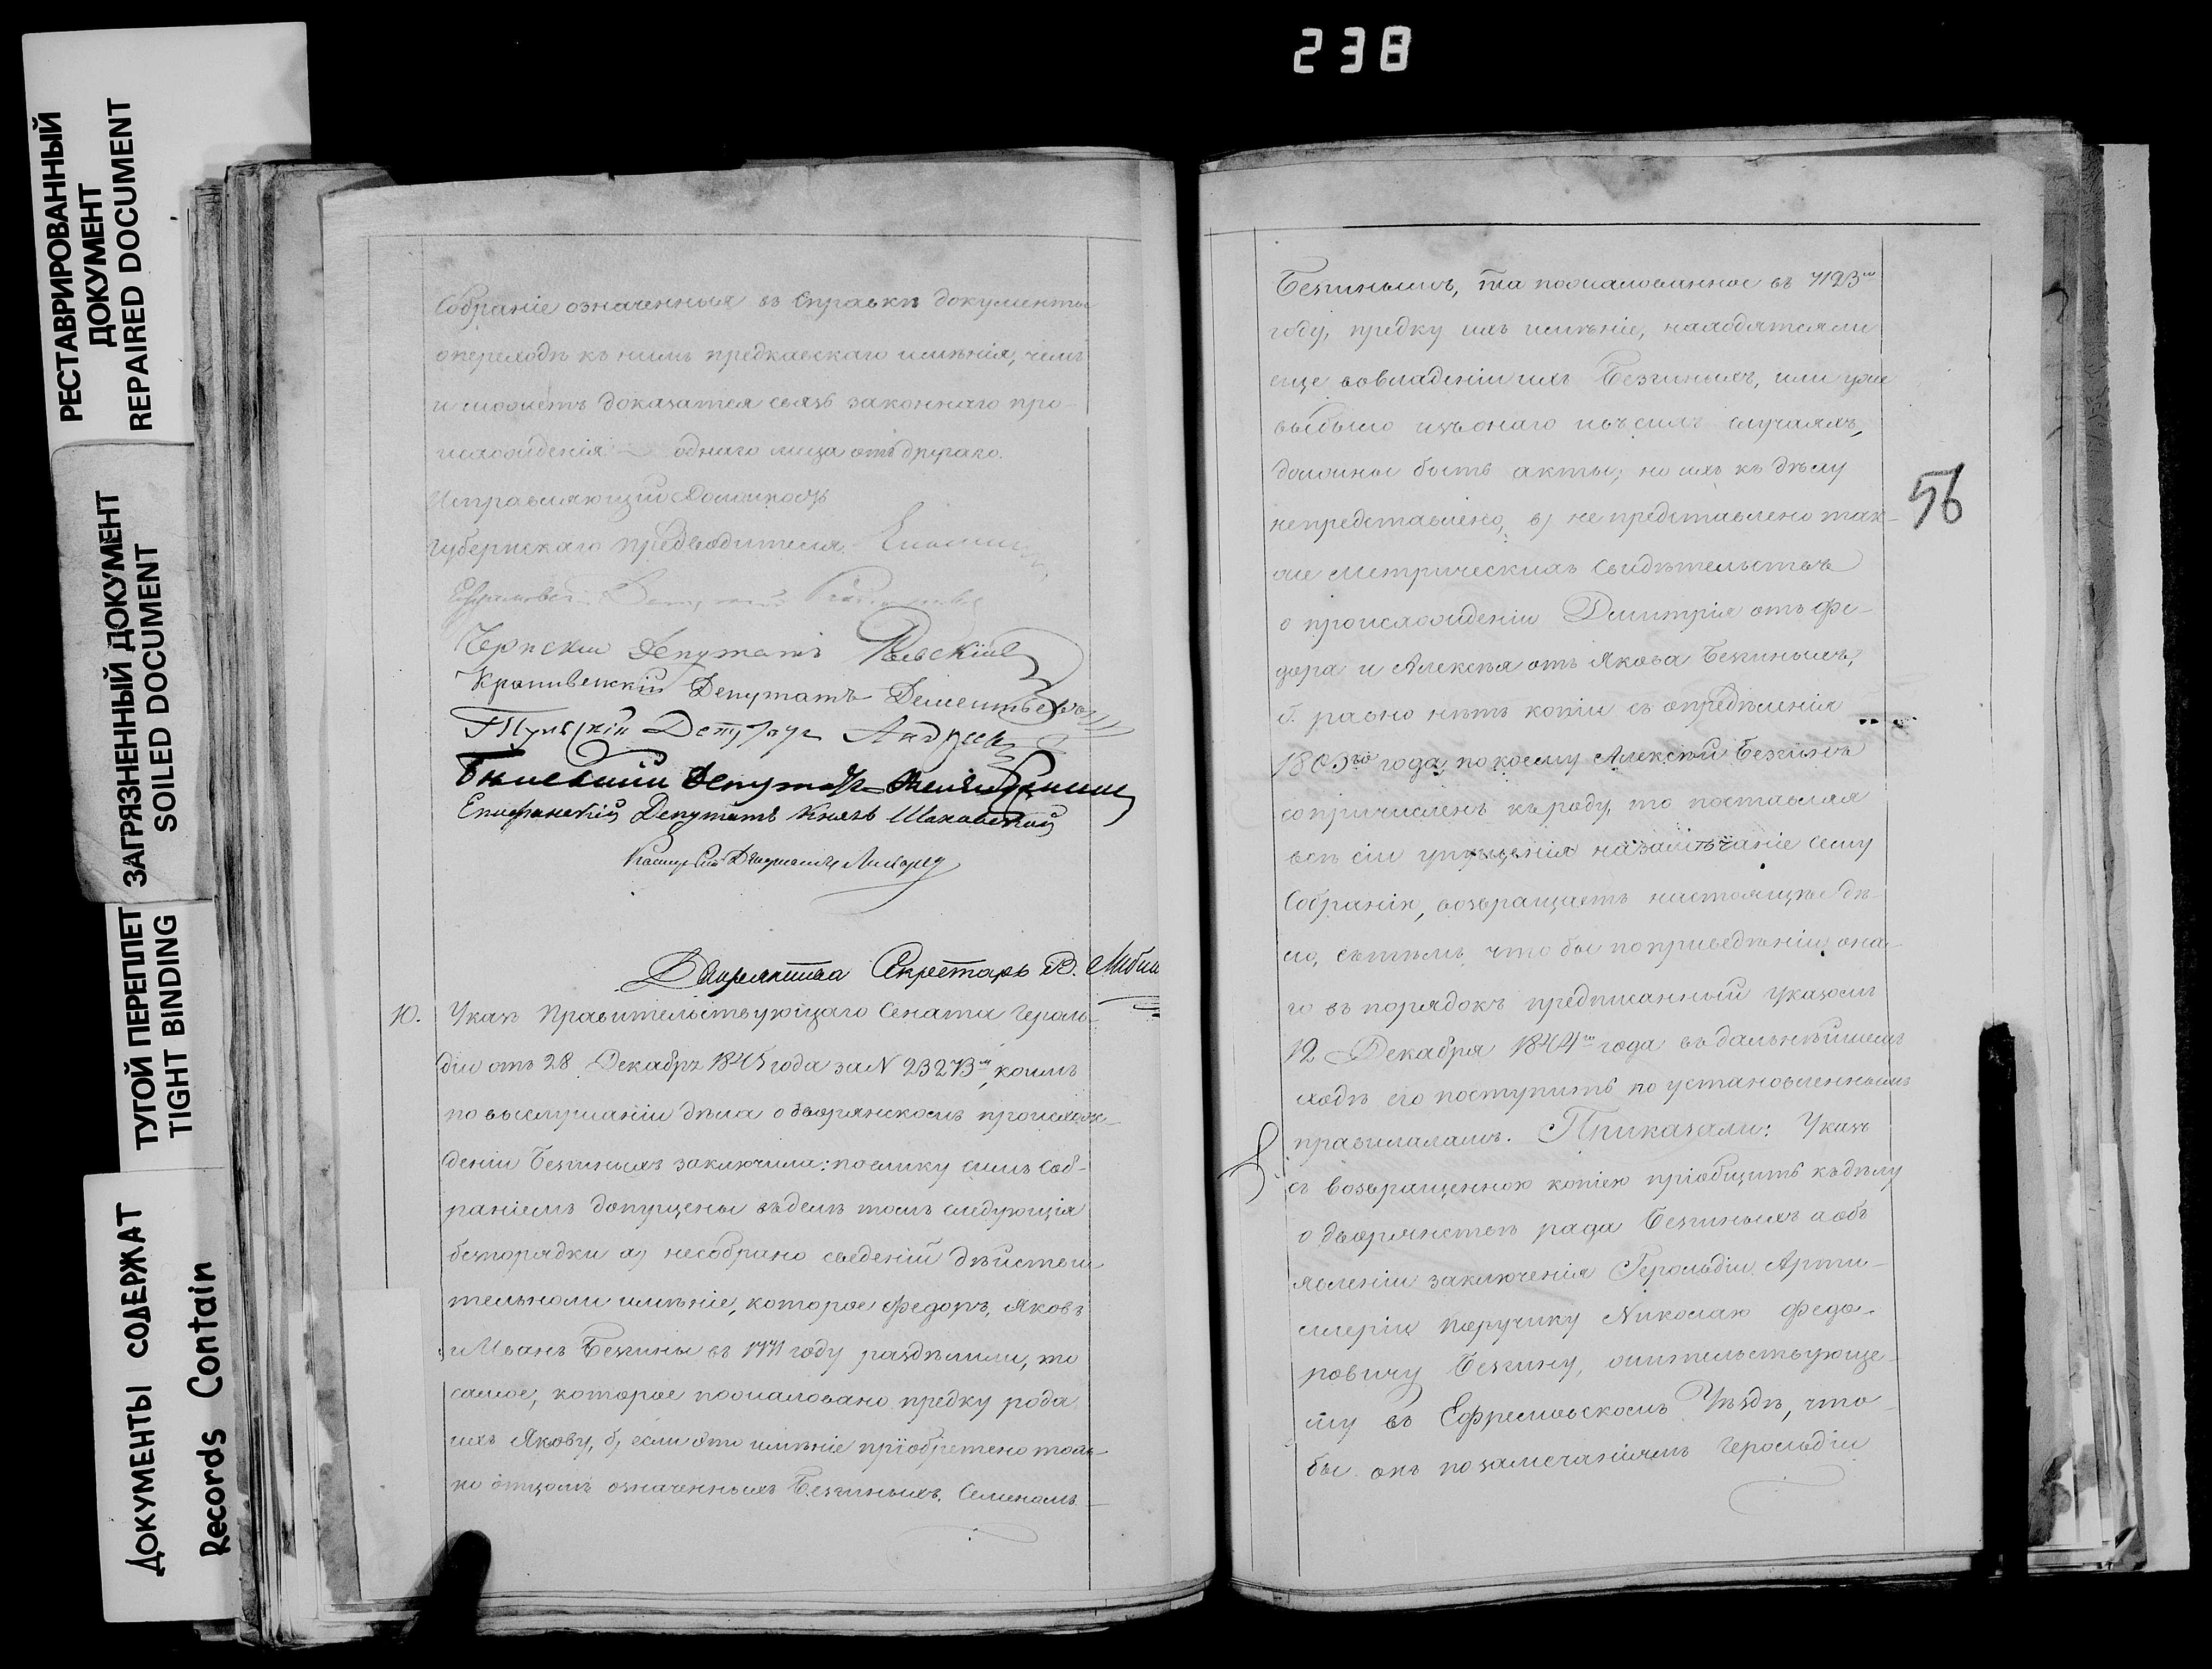 238
РЕСТАВРИРОВАННЫЙ
ДОКУМЕНТ
REPAIRED DOCUMENT
ЗАГРЯЗНЕННЫЙ ДОКУМЕНТ
SOILED DOCUMENT
ТУГОЙ ПЕРЕПЛЕТ
TIGHT BINDING
ДОКУМЕНТЫ СОДЕРЖАТ
Records Contain
Собраніе означенныя въ Справкѣ документы
о переходѣ къ нимъ предковскаго имѣнія, чемъ
и можетъ доказатся связь законнаго про-
исхожденія однаго лица отъ другаго.
Исправляющій Должность
Губернскаго Предводителя
Депутатъ
Чернскій Депутатъ
Крапивенскій Депутатъ Дементьевъ
Тульскій Депутатъ
Депутатъ
Епифанскій Депутатъ Князь Шаховской
Каширскій Депутатъ
Дворянства Секретарь В.
10. Указъ Правительствующаго Сената Героль-
діи отъ 28 Декабря 1845 года за N 23273мъ, коимъ
по выслушаніи дѣла о дворянскомъ происхож-
деніи Безгиныхъ заключила: поелику симъ Соб-
раніемъ допущены въ делѣ томъ следующія
безпорядки а) несобрано сведеній дѣйстви
тельноли имѣніе, которое Федоръ, Яковъ
и Иванъ Безгины въ 1771 году раздѣлили, то
самое, которое пожаловано предку рода
ихъ Якову, б) если это имѣніе пріобретено толь-
ко отцомъ означенныхъ Безгиныхъ. Семеномъ
Безгинымъ, та пожалованное въ 7123мъ
году, предку ихъ имѣніе, находятсяли
еще вовладеніи ихъ Безгиныхъ, или уже
выбыло изъ онаго по симъ случаямъ,
должны быть акты; но ихъ къ дѣлу
непредставлено, в) не представлено так-
же Метрическихъ Свидѣтельствъ
о происхожденіи Дмитрія отъ Фе-
дора и Алексѣя отъ Якова Безгиныхъ,
г. равно нѣтъ копіи съ опредѣленія
1803го года, по коему Алексѣй Безгинъ
сопричисленъ къ роду, то поставляя
всѣ сіи упущенія на замѣчаніе сему
Собранію, возвращаетъ настоящее дѣ-
ло, съ тѣмъ что бы по приведѣніи она-
го въ порядокъ предписанный указомъ
12 Декабря 1844го года въ дальнѣйшемъ
ходѣ его поступить по установленнымъ
правилаламъ. Приказали: Указъ
съ возвращенною копіею пріобщить къ дѣлу
о дворянствѣ рада Безгиныхъ а объ
явленіи заключенія Герольдіи Арти-
леріи Поручику Николаю Федо-
ровичу Безгину, жительствующе-
му въ Ефремовскомъ Уѣздѣ, что
бы онъ по замечаніямъ Герольдіи
56